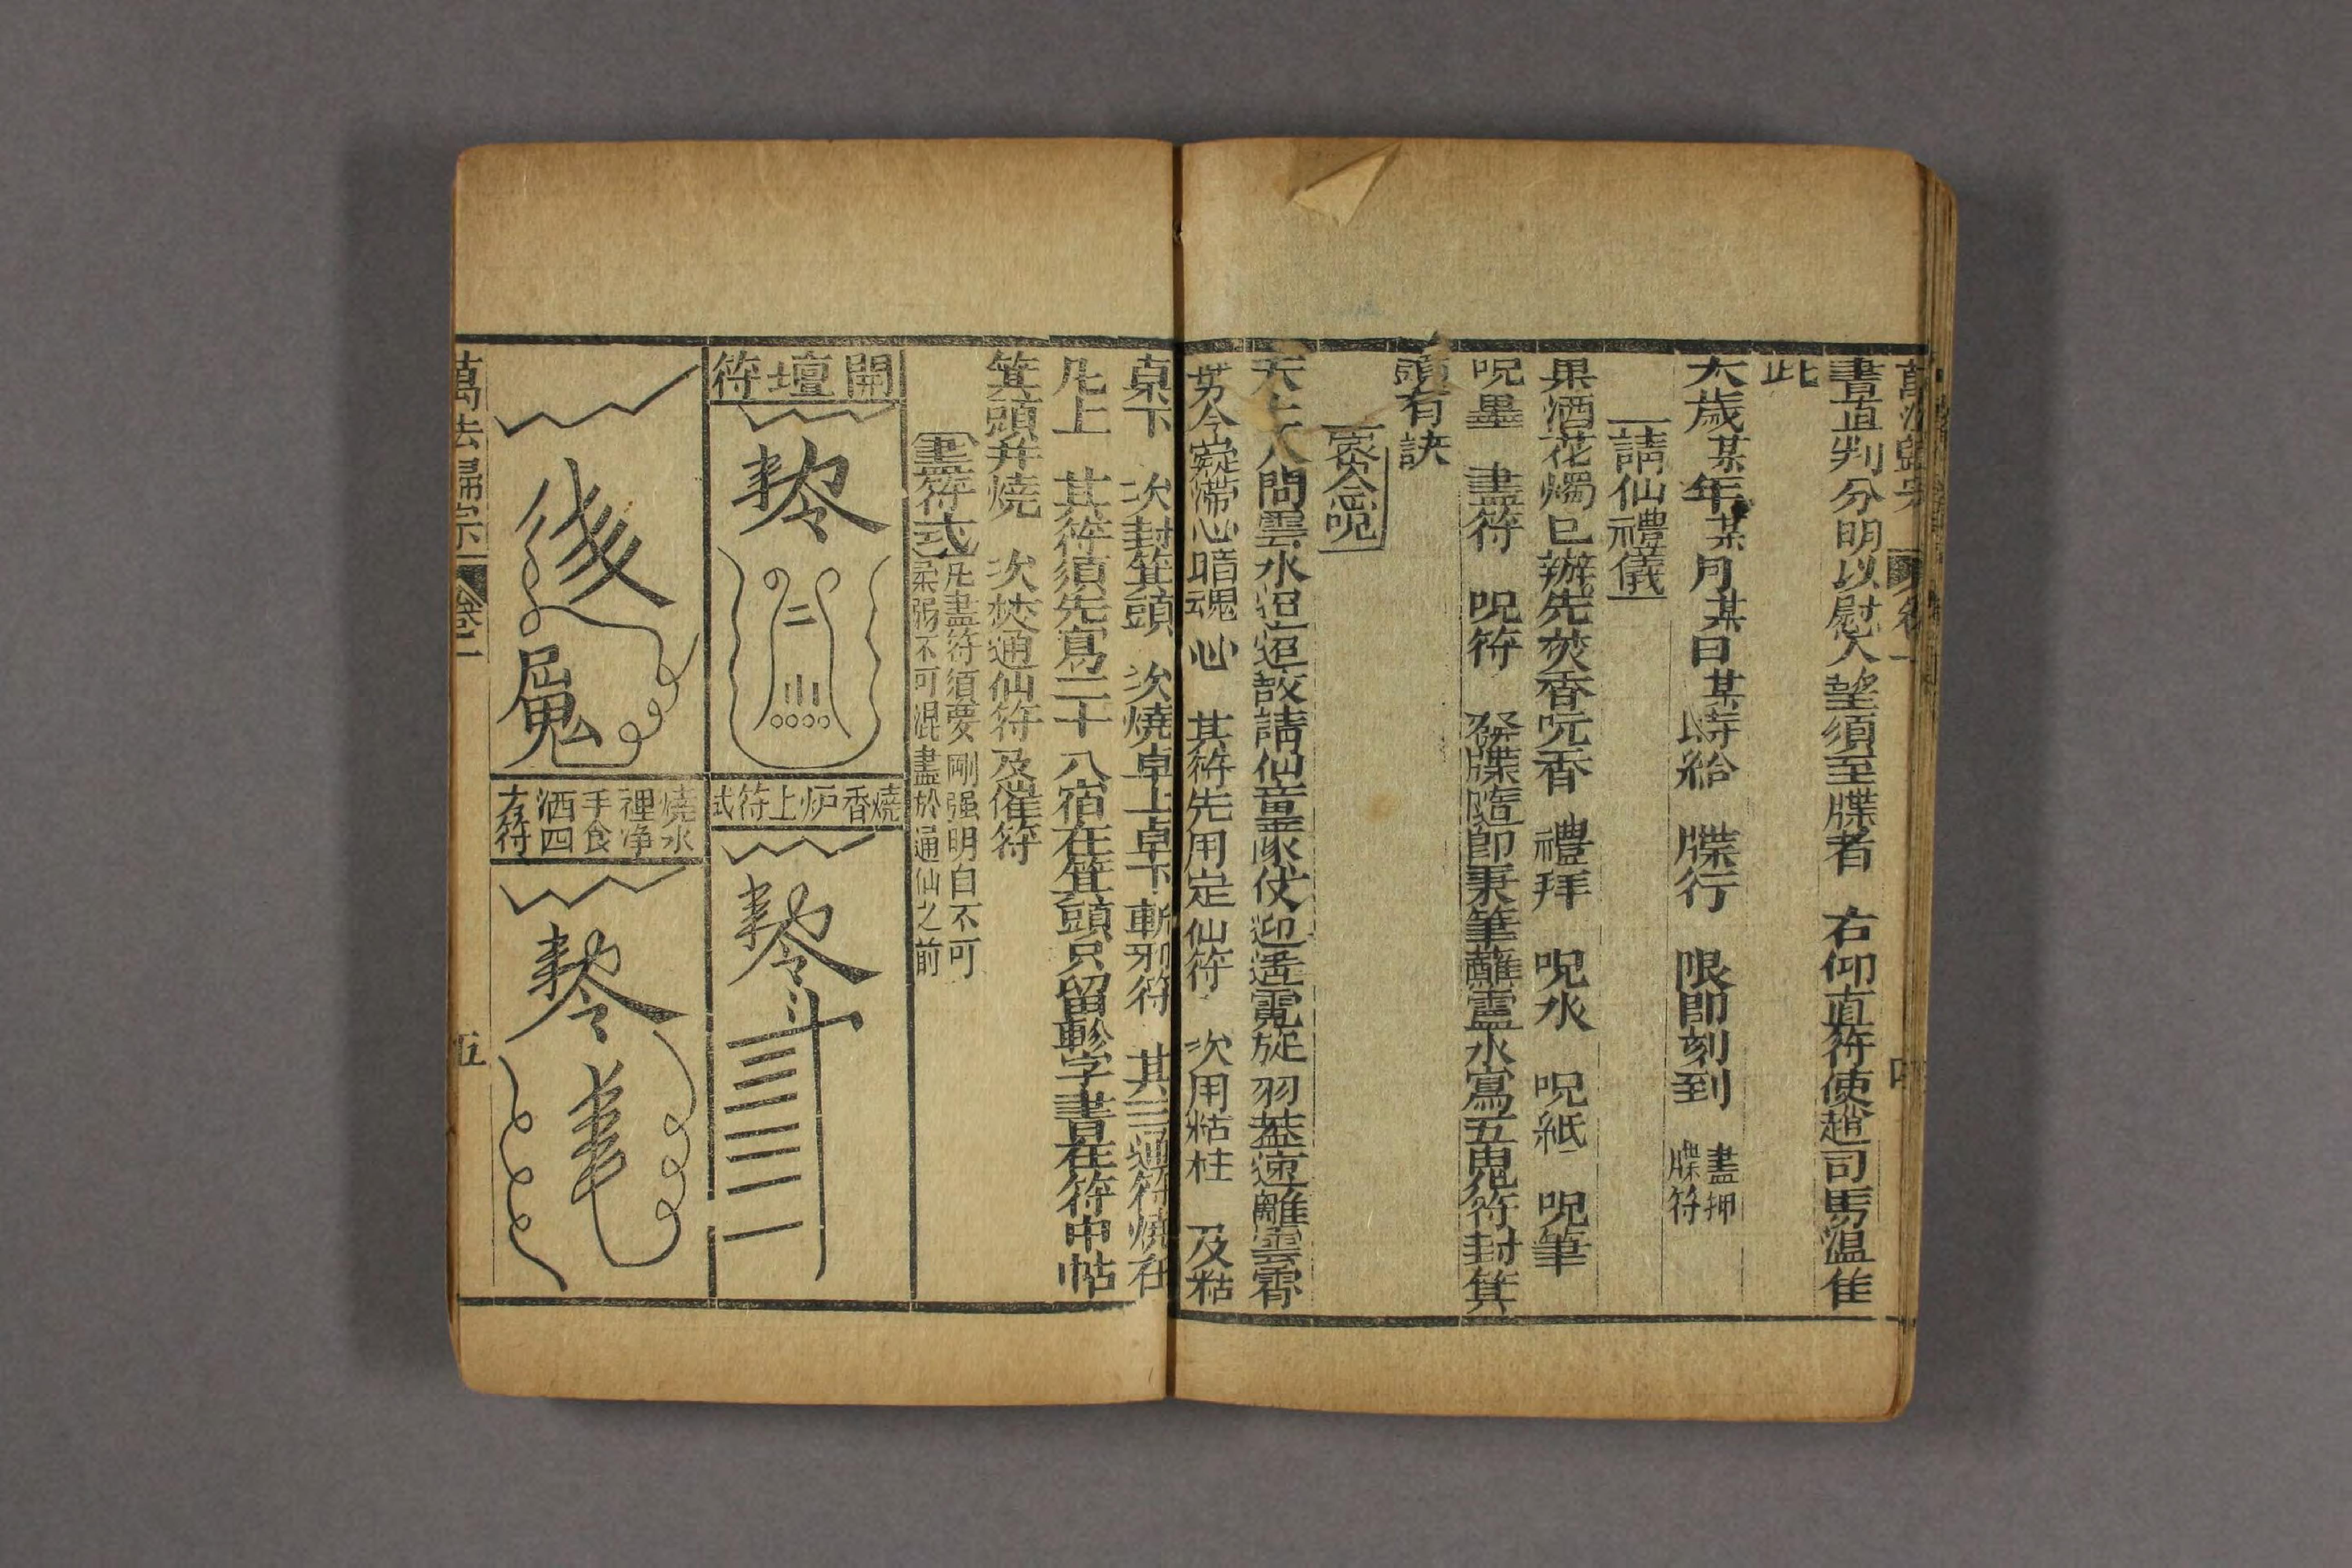 書直判分明以慰人望須至牒者　右仰直符使趙司馬溫隹
此
太歲某年某月某日某時給　牒行　限即刻到　畫押牒符
請仙禮儀
果酒花燭已辦先焚香咒香　禮拜　呪水　呪紙　呪筆
呪墨　畫符　呪符　發牒隨即秉筆蘸靈水寫五鬼符封箕
頭有訣
天上人間雲水迢迢故請仙童隊仗迎送霓旌羽葢速離雲霄
其符先用定仙符　次用粘柱　及粘
桌下　次封箕頭　次燒卓上卓下斬邪符　其三道符燒在
凡上　其符須先寫二十八宿在箕頭只留軫字書在符中帖
箕頭弁燒　次焚通仙符及催符
畫符式
凡畫符須要剛强明白不可
柔弱不可混畫於通仙之前
開壇符
燒香炉上符式
燒水
裡净
手食
洒四
方符
萬法歸宗
卷一
五